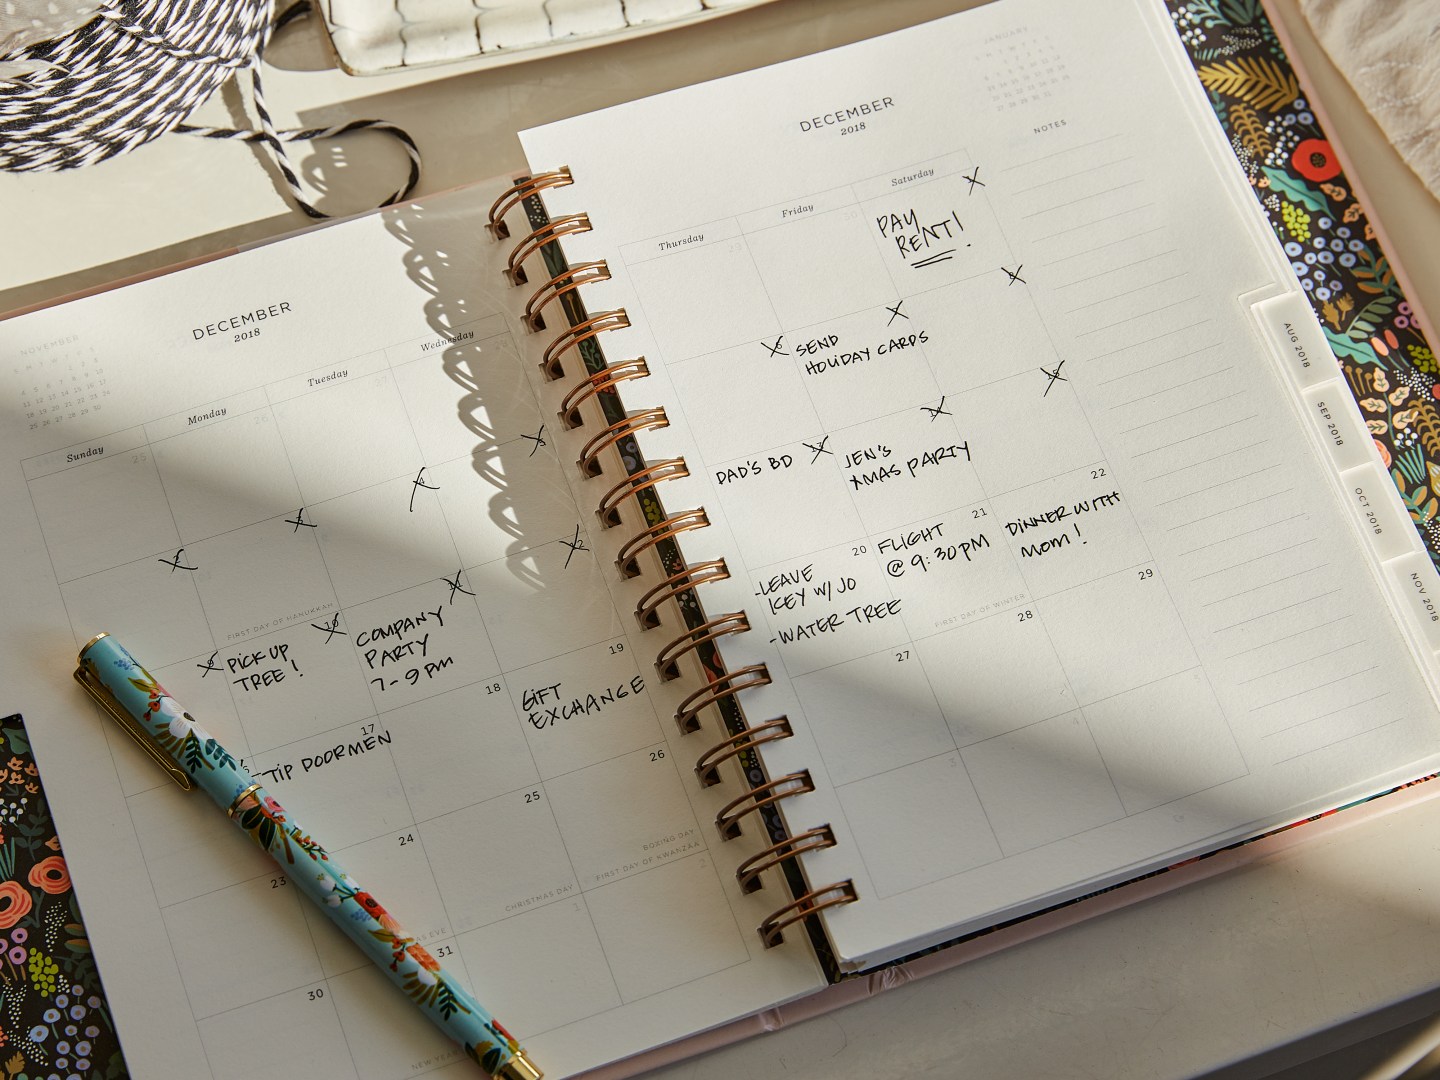 DECEMBER
2018
NOVEMBER
Sunday
Monday
Tuesday
Wednesday
FIRST DAY OF HANUKKAH
9
PICK UP
TREE!
10
COMPANY
PARTY
7-9 PM
17
-TIP DOORMEN
18
19
GIFT
EXCHANGE
23
24
25
CHRISTMAS DAY
26
BOXING DAY
FIRST DAY OF KWANZAA
30
31
DECEMBER
2018
JANUARY
NOTES
Thursday
Friday
Saturday
PAY
RENT!
6
SEND
HOLIDAY CARDS
8
DAD'S BD
13
JEN'S
XMAS PARTY
14
15
20
-LEAVE
KEY W/ JO
-WATER TREE
21
FLIGHT
@ 9:30PM
FIRST DAY OF WINTER
22
DINNER WITH
MOM!
27
28
29
AUG 2018
SEP 2018
OCT 2018
NOV 2018